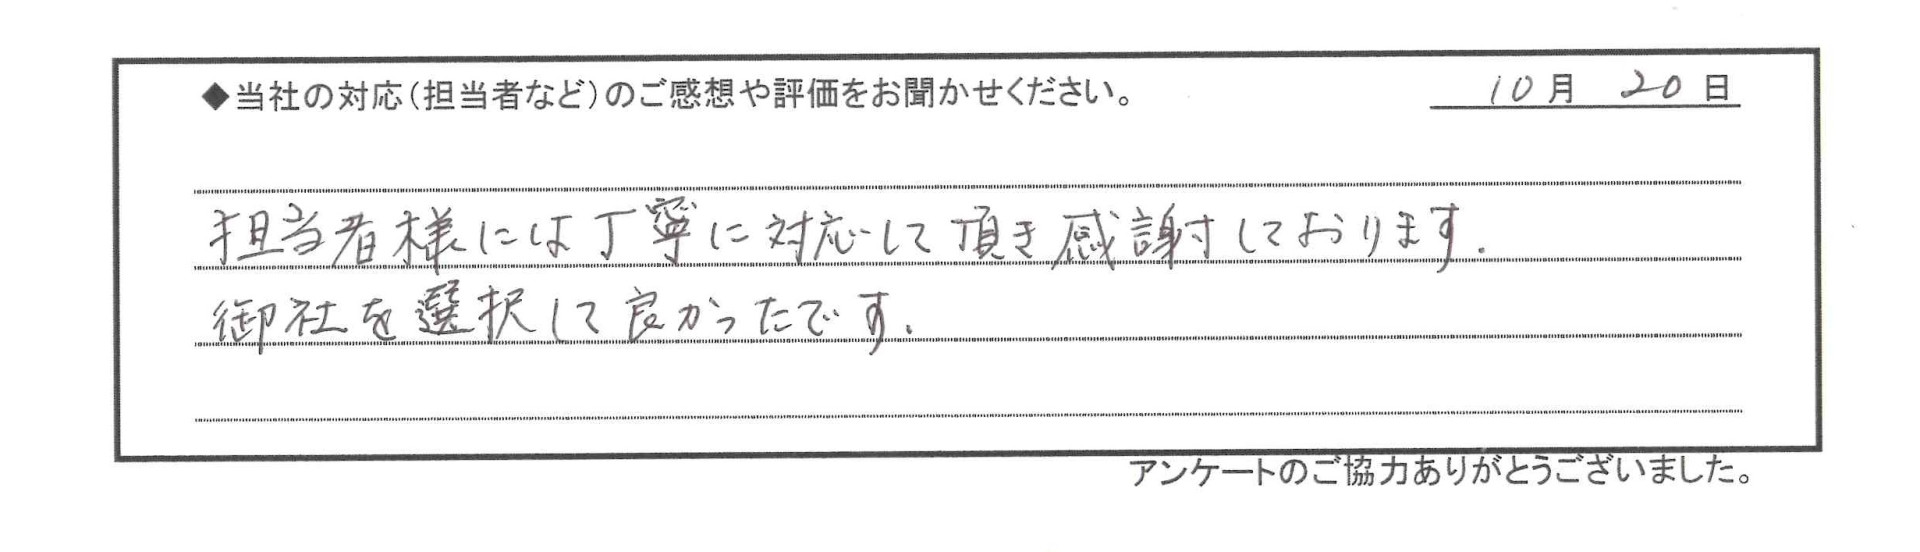 ◆当社の対応(担当者など)のご感想や評価をお聞かせください。 10月 20日
担当者様には丁寧に対応して頂き感謝しております.
御社を選択して良かったです.
アンケートのご協力ありがとうございました。